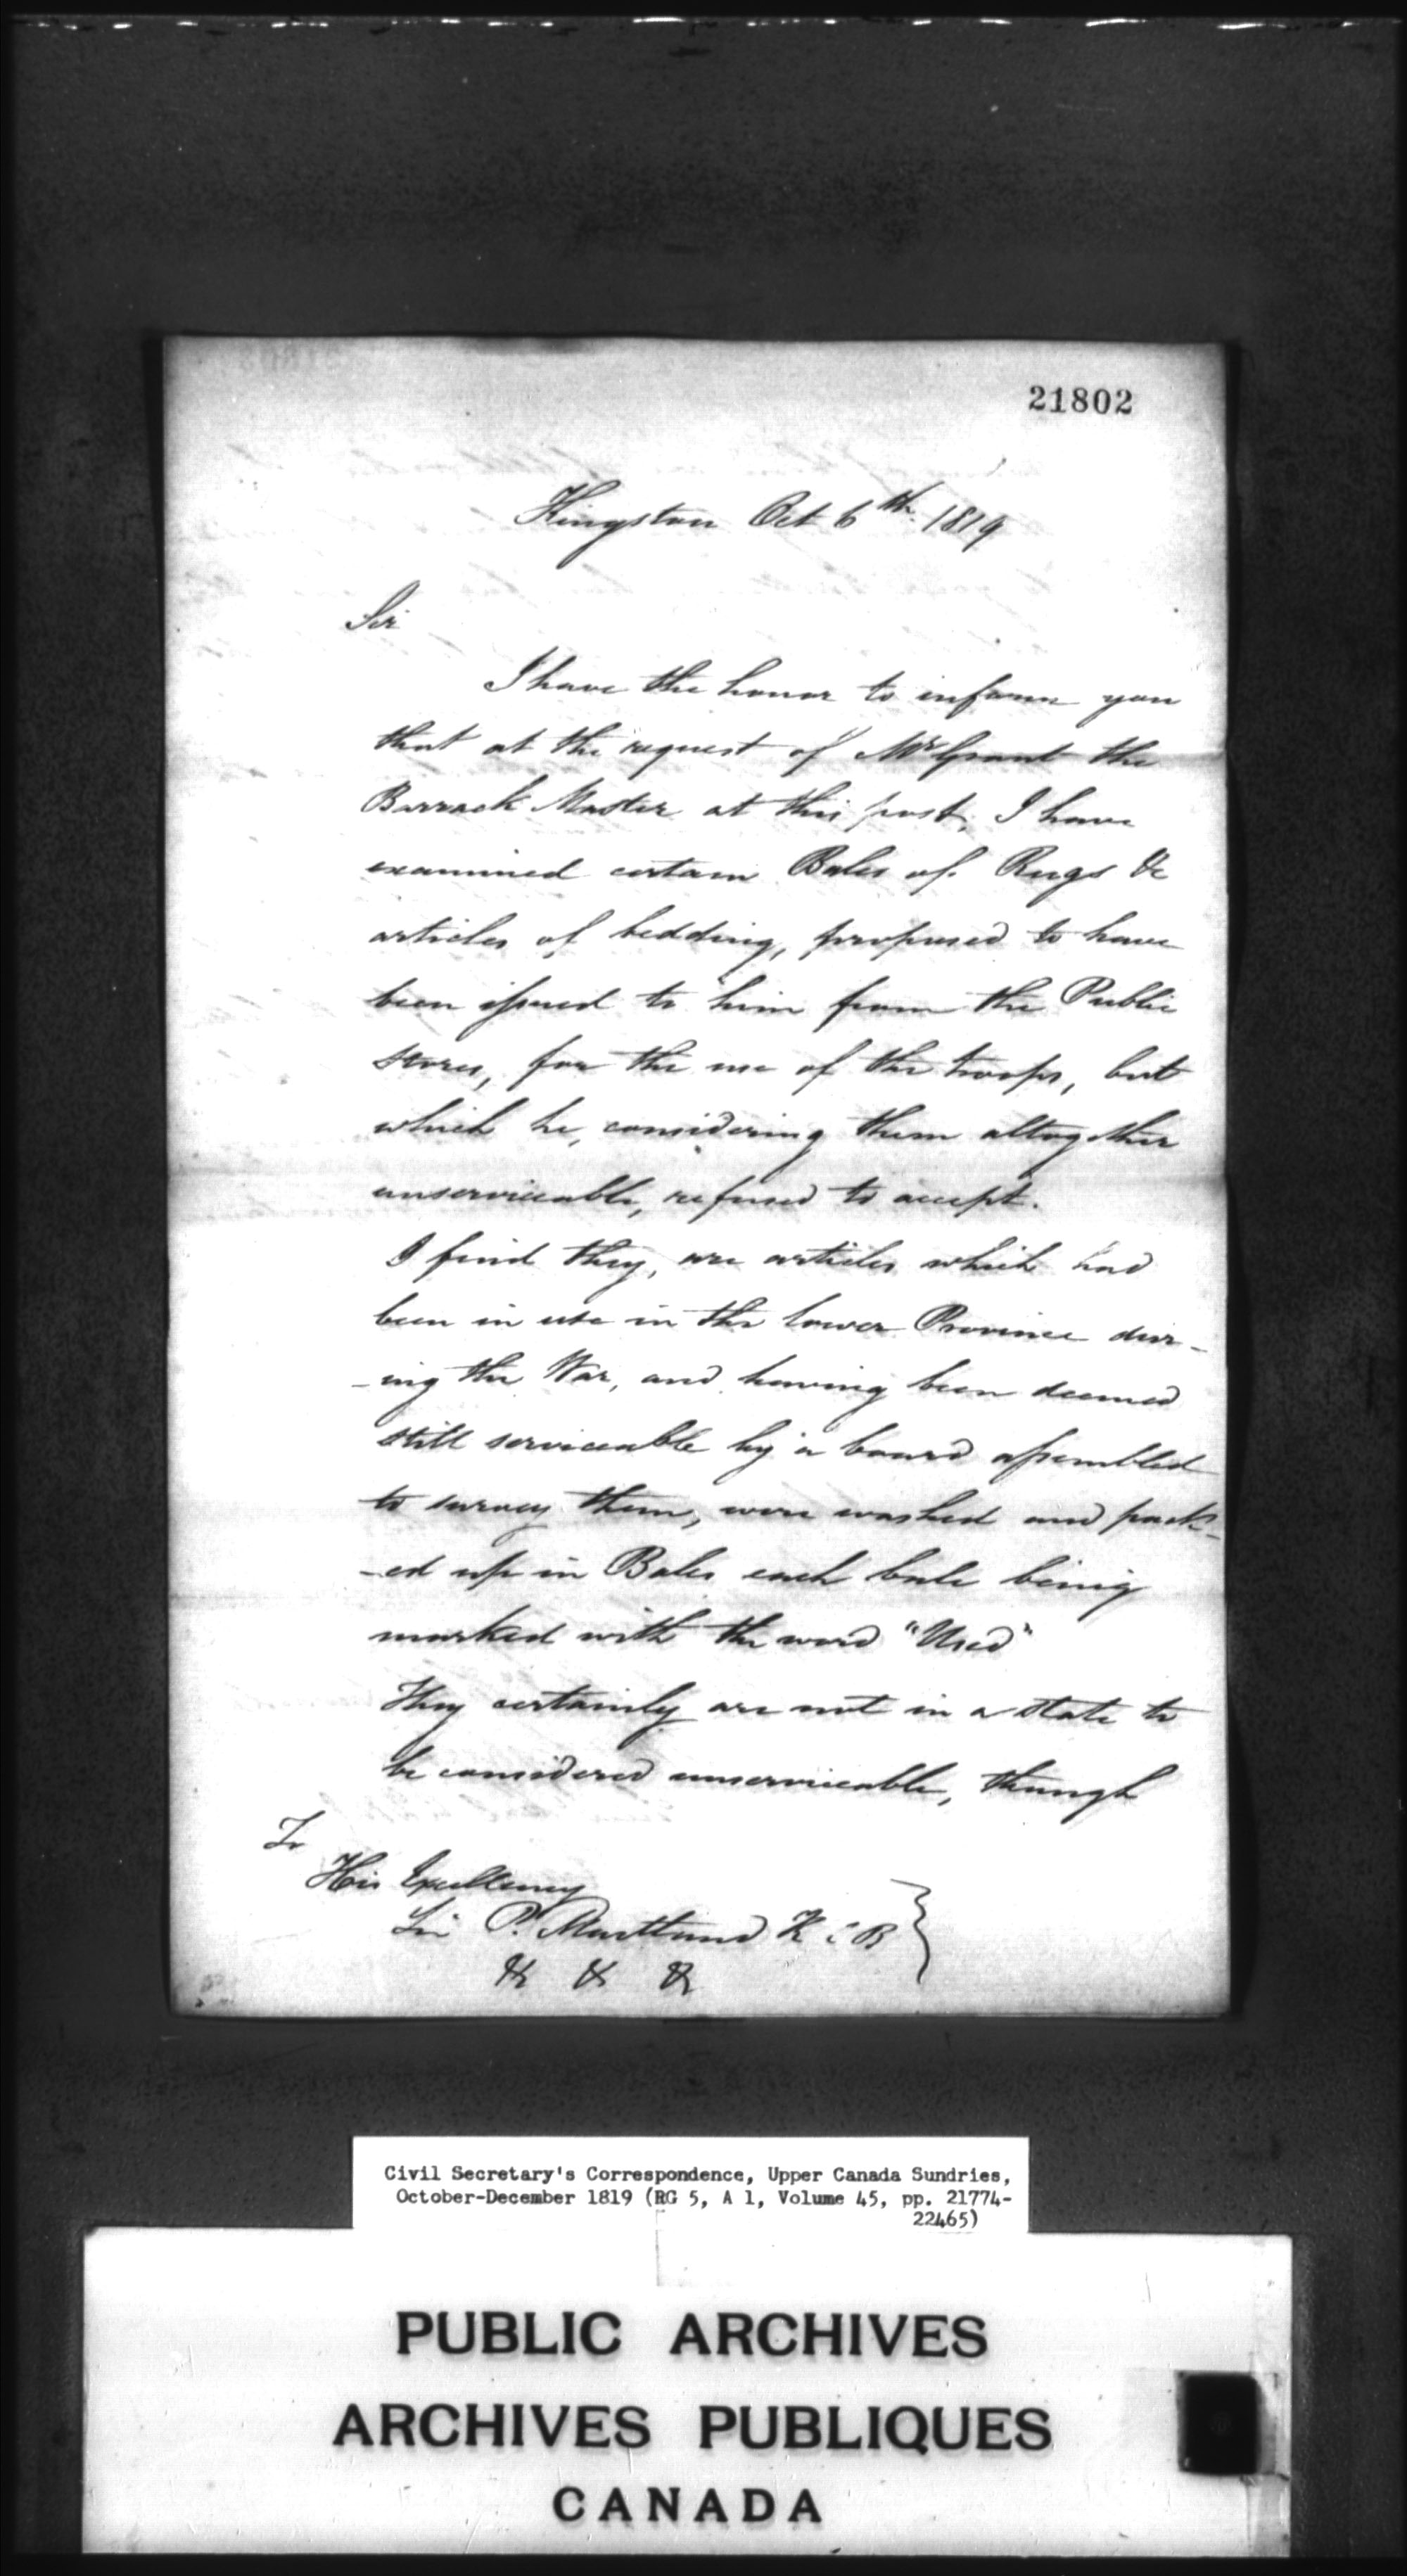 21802
Kingston Oct 6th. 1819
Sir
I have the honor to inform you
that at the request of Mr Grant the
Barrack Master at this post, I have
examined certain Bales of Rugs &c
articles of bedding, proposed to have
been issued to him from the Public
Stores, for the use of the troops, but
which he, considering them altogether
unserviceable, refused to accept.
I find they, are articles which had
been in use in the lower Province dur-
-ing the War, and having been deemed
still serviceable by a board assembled
to survey them, were washed and pack-
-ed up in Bales each bale being
marked with the word "Used"
They certainly are not in a state to
be considered unserviceable, though
To
His Excellency
Sir P. Maitland K C B
&c &c &c
Civil Secretary's Correspondence, Upper Canada Sundries,
October-December 1819 (RG 5, A 1, Volume 45, pp. 21774-
22465)
PUBLIC ARCHIVES
ARCHIVES PUBLIQUES
CANADA